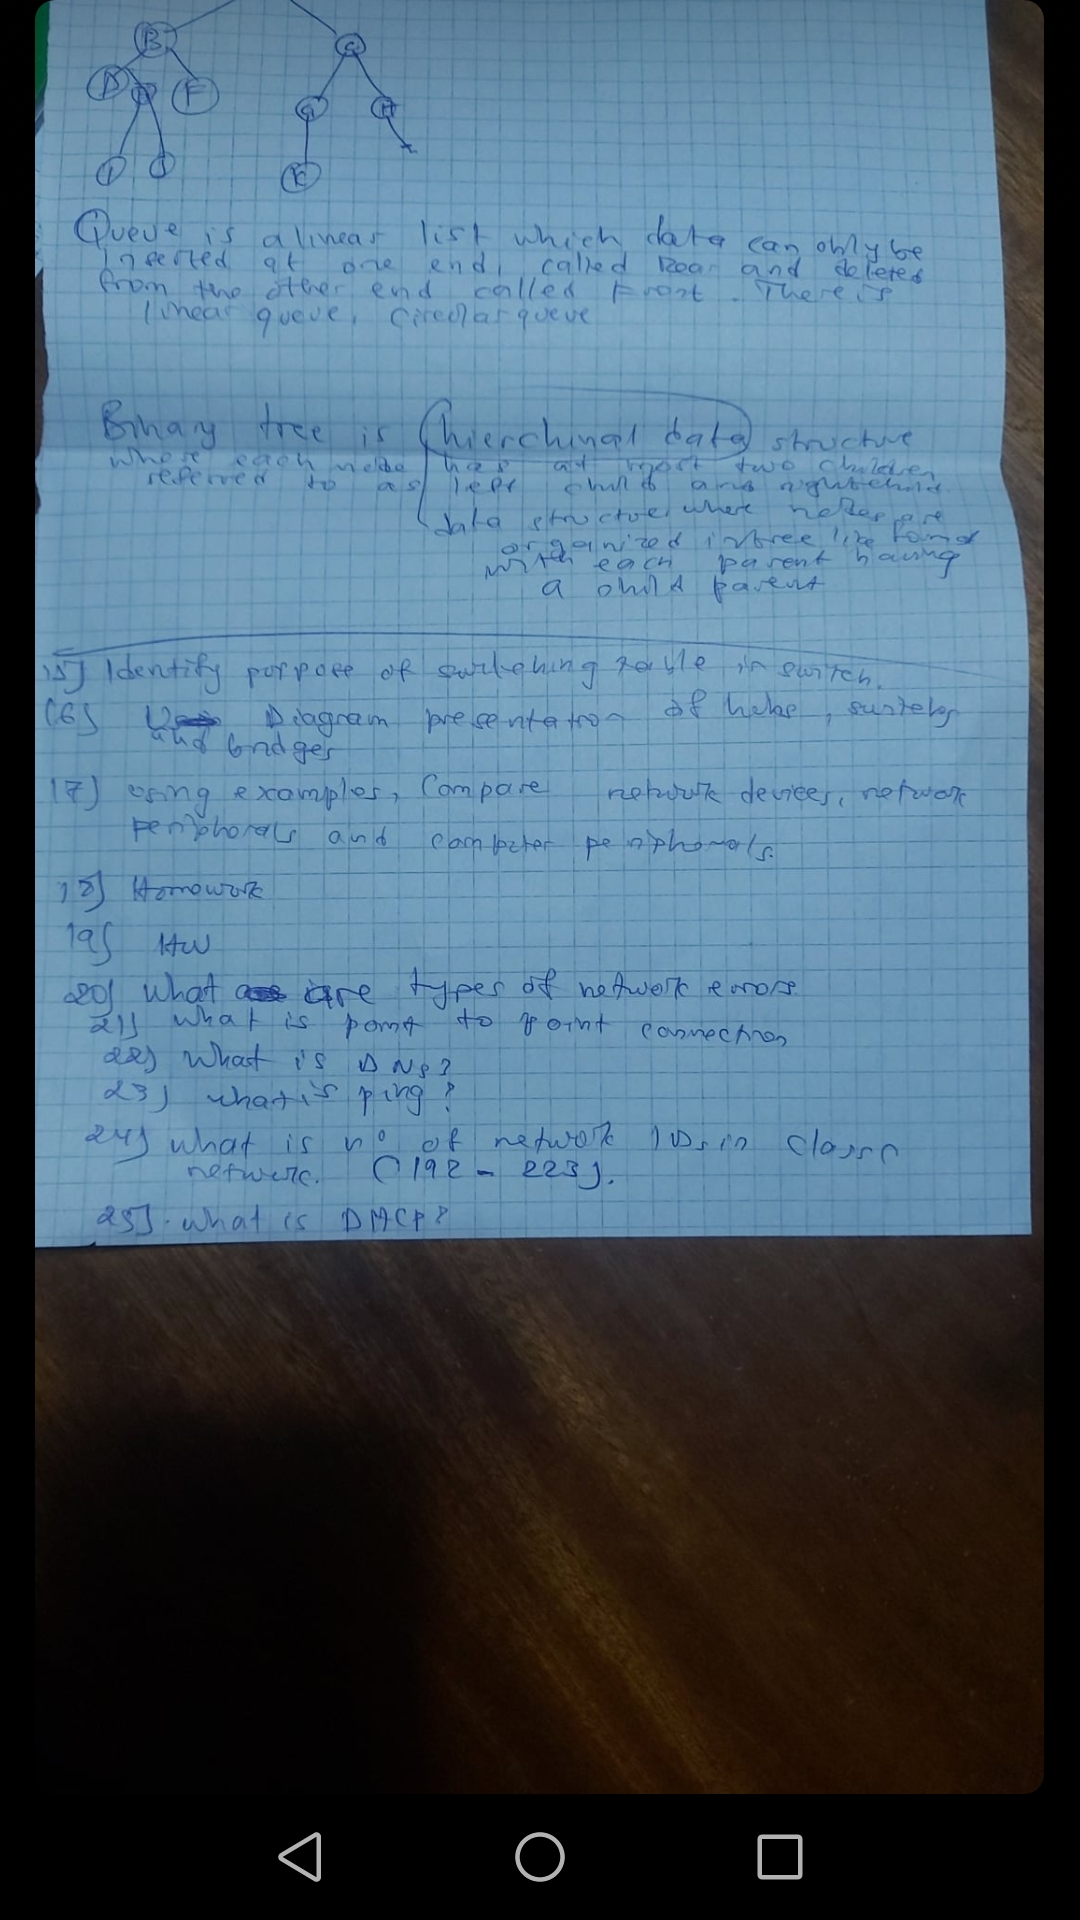 B
C
D
F
G
H
I
J
K
Queue is a linear list which data can only be
inserted at one end, called Rear and deleted
from the other end called Front. There is
linear queue, circular queue
Binary tree is hierchinal data structure
whose each node has at most two children
referred to as left child and right child.
data structure where nodes are
organized in tree like form
with each parent having
a child parent
15) Identify purpose of switching table in switch.
16) Diagram presentation of hubs, switches
and bridges
17) using examples, Compare network devices, network
peripherals and computer peripherals.
18) Homework
19) HW
20) What are types of network errors
21) what is point to point connection
22) What is DNS?
23) what is ping?
24) what is no of network IDs in class C
network. (192 - 223).
25). what is DHCP?